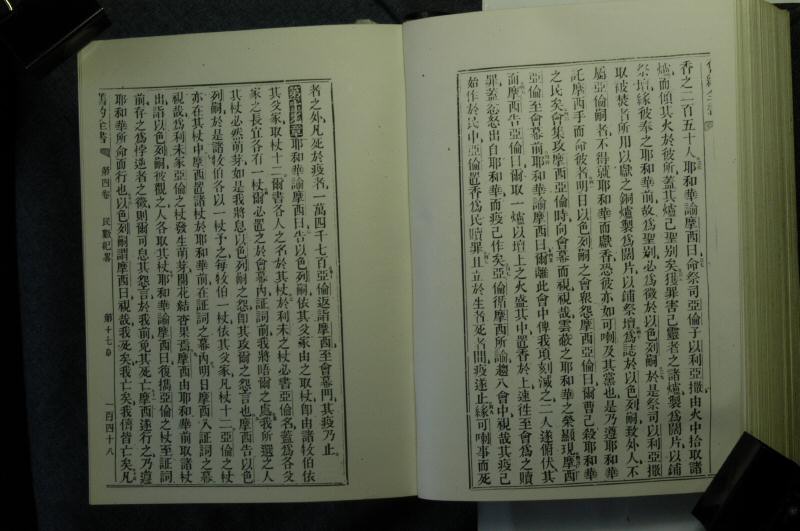 香之二百五十人耶和華諭摩西曰命祭司亞倫子以利亞撒由火中拾取諸
爐而傾其火於彼所蓋其爐己聖別矣獲罪害己靈者之諸爐製爲闊片以鋪
祭壇緣彼奉之耶和華前故爲聖別必爲徵於以色列嗣於是祭司以利亞撒
取被焚者所用以獻之銅爐製爲闊片以鋪祭壇爲誌於以色列嗣致外人不
屬亞倫嗣者不得就耶和華而獻香恐彼亦如可喇及其黨也是乃遵耶和華
託摩西手而命彼者明日以色列嗣之會衆怨摩西亞倫曰爾曹己殺耶和華
之民矣會集攻摩西亞倫時向會幕而視視哉雲蔽之耶和華之榮顯現摩西
亞倫至會幕前耶和華諭摩西曰爾離此會中俾我頃刻滅之二人遂俯伏其
面摩西告亞倫曰爾取一爐以壇上之火盛其中置香於上速往至會爲之贖
罪蓋忿怒出自耶和華而疫己作矣亞倫循摩西所諭趨入會中視哉其疫己
始作於民中亞倫置香爲民贖罪且立於生者死者間疫遂止緣可喇事而死
者之外凡死於疫者一萬四千七百亞倫返詣摩西至會幕門其疫乃止
第十七章耶和華諭摩西曰告以色列嗣依其父家由之取杖卽由諸牧伯依
其父家取杖十二爾書各人之名於其杖於利未之杖必書亞倫名蓋爲各父
家之長宜各有一杖爾必置之於會幕內証詞前我將晤爾之處我所選之人
其杖必然萌芽如是我將息以色列嗣之怨卽其攻爾之怨言也摩西告以色
列嗣於是諸牧伯各以一杖予之每牧伯一杖依其父家凡杖十二亞倫之杖
亦在其杖中摩西置諸杖於耶和華前在証詞之幕內明日摩西入証詞之幕
視哉爲利未家亞倫之杖發生萌芽開花結杏果焉摩西由耶和華前取諸杖
出詣以色列嗣彼觀之人各取其杖耶和華諭摩西曰復攜亞倫之杖至証詞
前存之爲悖逆者之徵則爾可息其怨言於我前免其死亡摩西遂行之乃遵
耶和華所命而行也以色列嗣謂摩西曰視哉我死矣我亡矣我儕皆亡矣凡
舊約全書 第四卷 民數紀畧 第十七章 一百四十八